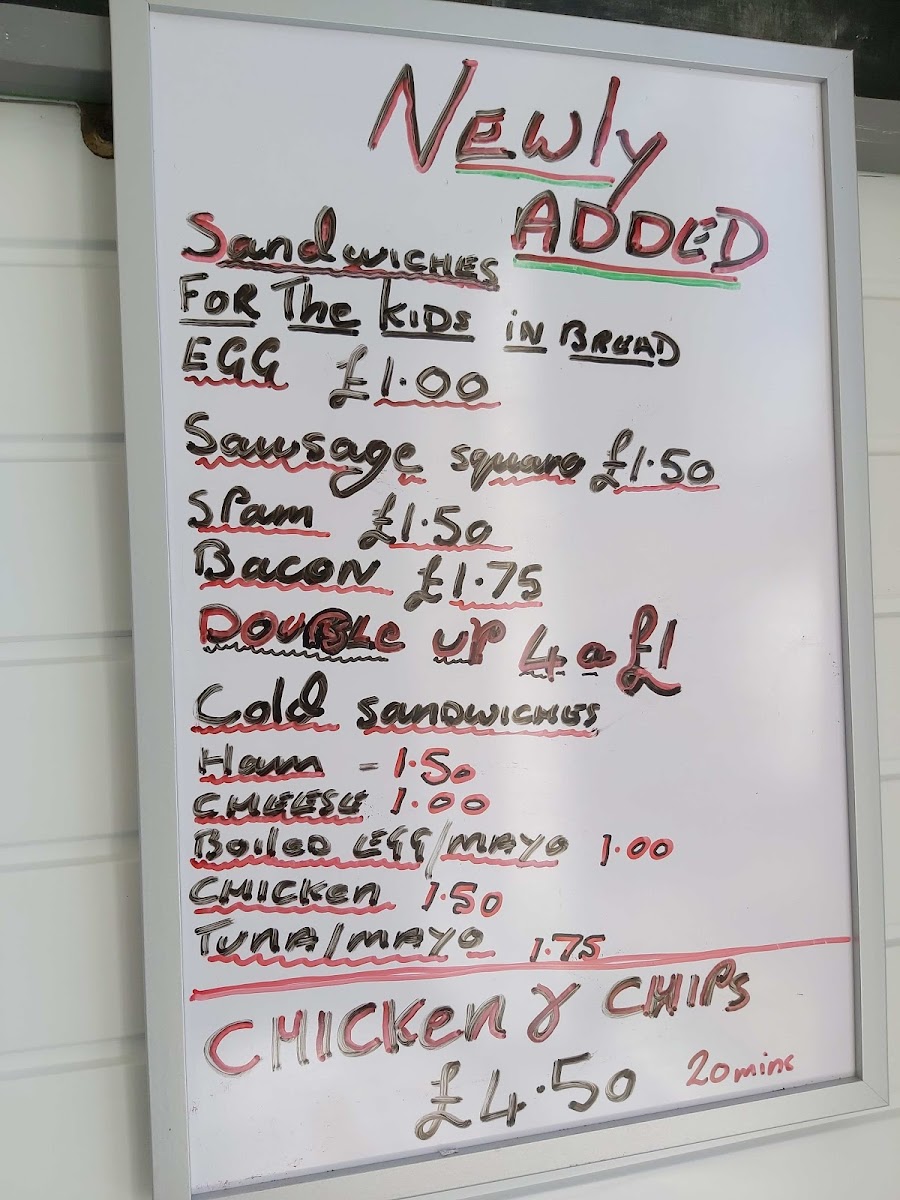 Newly
ADDED
Sandwiches
FOR The KIDS IN BREAD
EGG £1.00
Sausage square £1.50
Spam £1.50
Bacon £1.75
DOUBLE UP 4 a £1
Cold SANDWICHES
Ham - 1.50
CHEESE 1.00
Boiled EGG/MAYO 1.00
CHICKEN 1.50
Tuna/mayo 1.75
CHICKEN & CHIPS
£4.50 20 mins